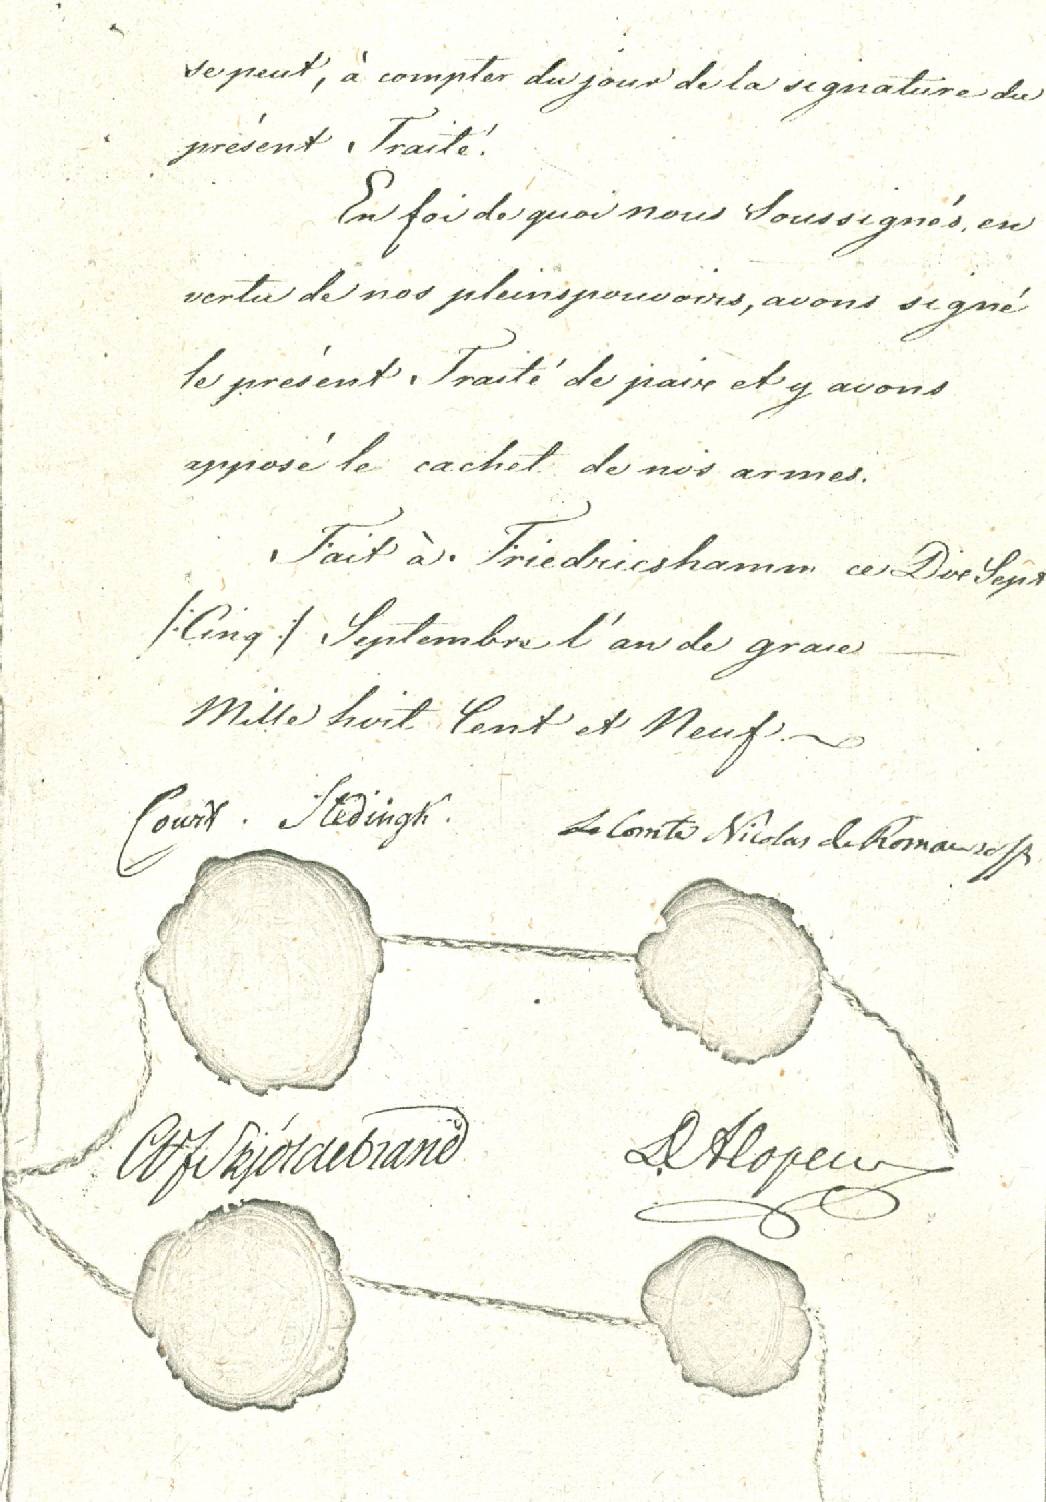 se peut, à compter du jour de la signature du
présent Traité.
En foi de quoi nous Soussignés, en
vertu de nos pleinspouvoirs, avons signé
le présent Traité de paix et y avons
apposé le cachet de nos armes.
Fait à Friedricshamm ce Dix Sept
/: Cinq :/ Septembre l'an de grace
Mille huit Cent et Neuf.
Court. Stedingk.
Le Comte Nicolas de Romanzoff
Skjöldebrand
D. Alopeus